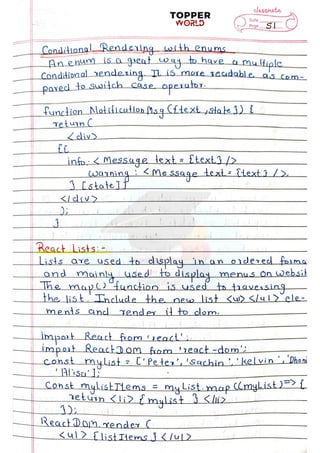 TOPPER
WORLD
Date
Page 51
Conditional Rendering with enums
An enum is a great way to have a multiple
Conditional rendering. It is more readable as com-
pared to switch case operator.
function NotificationMsg ({text, state}) {
return (
<div>
{{
info: <Message text = {text} />
warning: <Message text = {text} />,
} [state]}
</div>
);
}
React Lists:-
Lists are used to display in an ordered forma
and mainly used to display menus on websit
The map() function is used to traversing
the list. Include the new list <ul> </ul> ele-
ments and render it to dom.
import React from 'react';
import ReactDOM from 'react-dom';
const myList = ['Peter', 'Sachin', 'Kelvin', 'Dhoni
'Alisa'];
Const myListItems = myList.map((myList) => {
return <li> { mylist } </li>
});
ReactDOM.render (
<ul> {listItems} </ul>